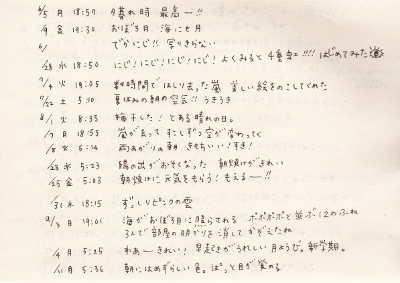 6/5 月 18:57 夕暮れ時 最高ー!!
/9 金 19:30 おぼろ月 海に七月
6/ でかにじ!! 写りきらない
/28 水 18:50 にじ!にじ!にじ!にじ! よくみると4重虹!!!! はじめてみた
7/4 火 19:05 数時間ではしり去った嵐 美しい絵をのこしてくれた
7/22 土 5:10 夏休みの朝の空気!! うきうき
8/1 火 8:35 梅干した! とある晴れの日。
/7 月 18:55 嵐が去って すこしずつ空が変わってく
/8 火 5:14 雨あがりの朝 きもちいい!すき!
/23 水 5:23 陽の出がおそくなった 朝焼けがきれい
/25 金 5:03 朝焼けに元気をもらう! もえるー!!
/31 木 18:15 ずっしりピンクの雲
9/3 日 19:01 海がおぼろ月に照らされる ポポポポと並ぶ12のふね
3人で部屋の明かりを消してかぞえたね
/4 月 5:25 わあーきれい! 早起きがうれしい月ようび。新学期。
/11 月 5:36 朝にはめずらしい色。ぱっと目が覚める